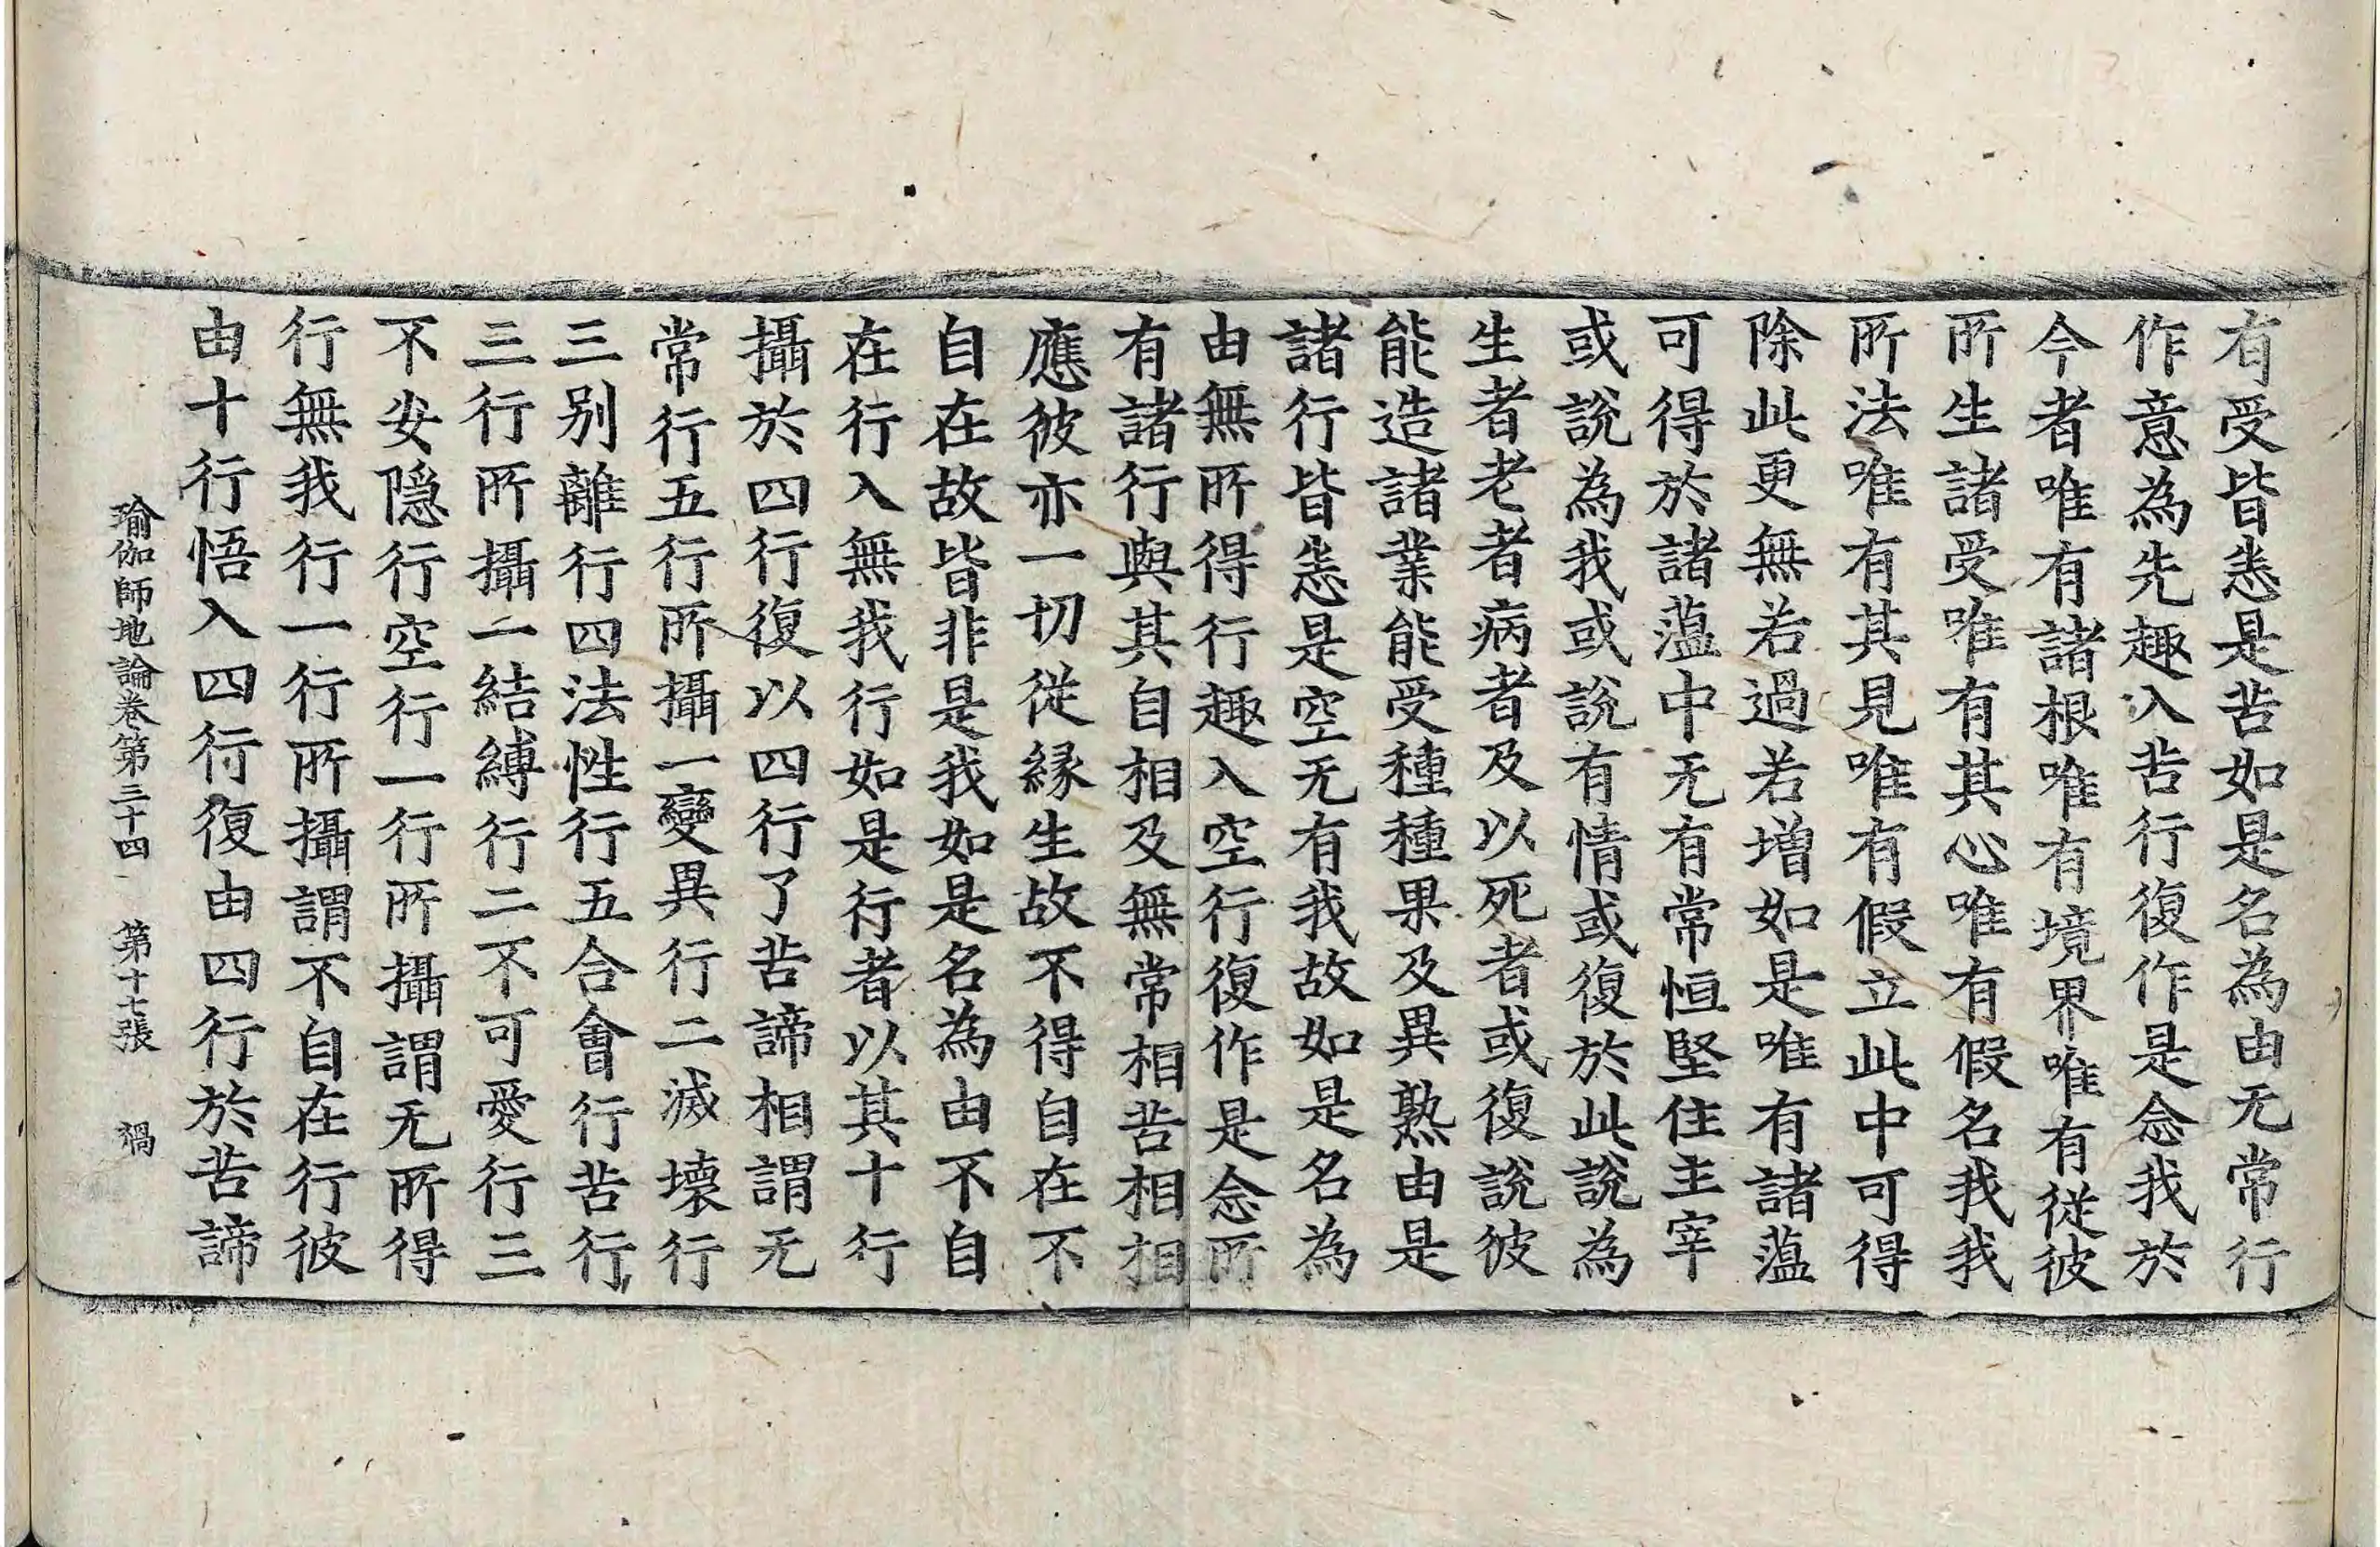 有受皆悉是苦如是名為由无常行
作意為先趣入苦行復作是念我於
今者唯有諸根唯有境界唯有從彼
所生諸受唯有其心唯有假名我我
所法唯有其見唯有假立此中可得
除此更無若過若增如是唯有諸蘊
可得於諸蘊中无有常恒堅住主宰
或說為我或說有情或復於此說為
生者老者病者及以死者或復說彼
能造諸業能受種種果及異熟由是
諸行皆悉是空无有我故如是名為
由無所得行趣入空行復作是念所
有諸行與其自相及無常相苦相相
應彼亦一切從緣生故不得自在不
自在故皆非是我如是名為由不自
在行入無我行如是行者以其十行
攝於四行復以四行了苦諦相謂无
常行五行所攝一變異行二滅壞行
三别離行四法性行五合會行苦行
三行所攝一結縛行二不可愛行三
不安隱行空行一行所攝謂无所得
行無我行一行所攝謂不自在行彼
由十行悟入四行復由四行於苦諦
瑜伽師地論卷第三十四 第十七張 禍